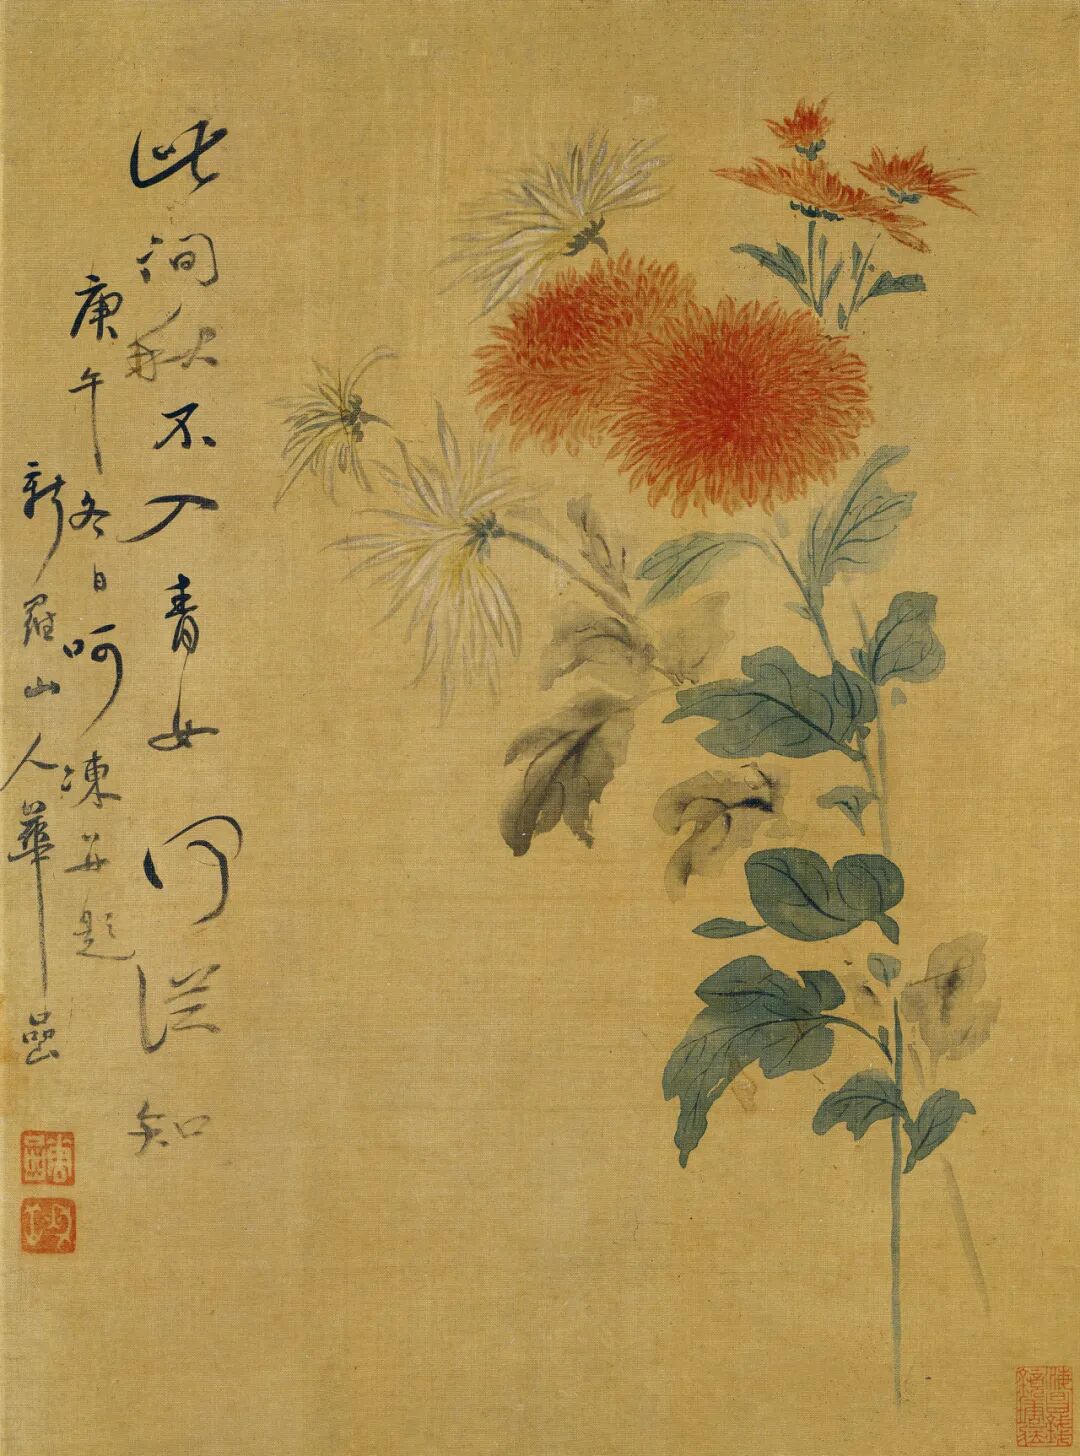 此澗秋不入青女何從知
庚午冬日呵凍并題
新羅山人華喦